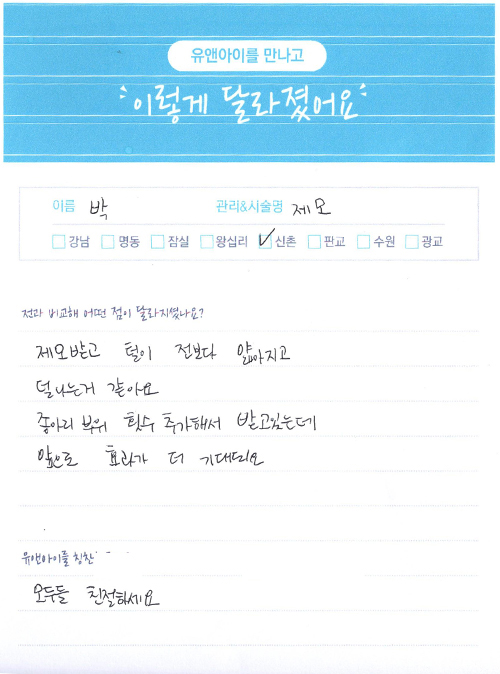 유앤아이를 만나고
이렇게 달라졌어요
이름 박 관리&시술명 제모
강남 명동 잠실 왕십리 신촌 판교 수원 광교
전과 비교해 어떤 점이 달라지셨나요?
제모받고 털이 전보다 얇아지고
덜나는거 같아요
종아리 부위 횟수 추가해서 받고있는데
앞으로 효과가 더 기대돼요
유앤아이를 칭찬
모두들 친절하세요